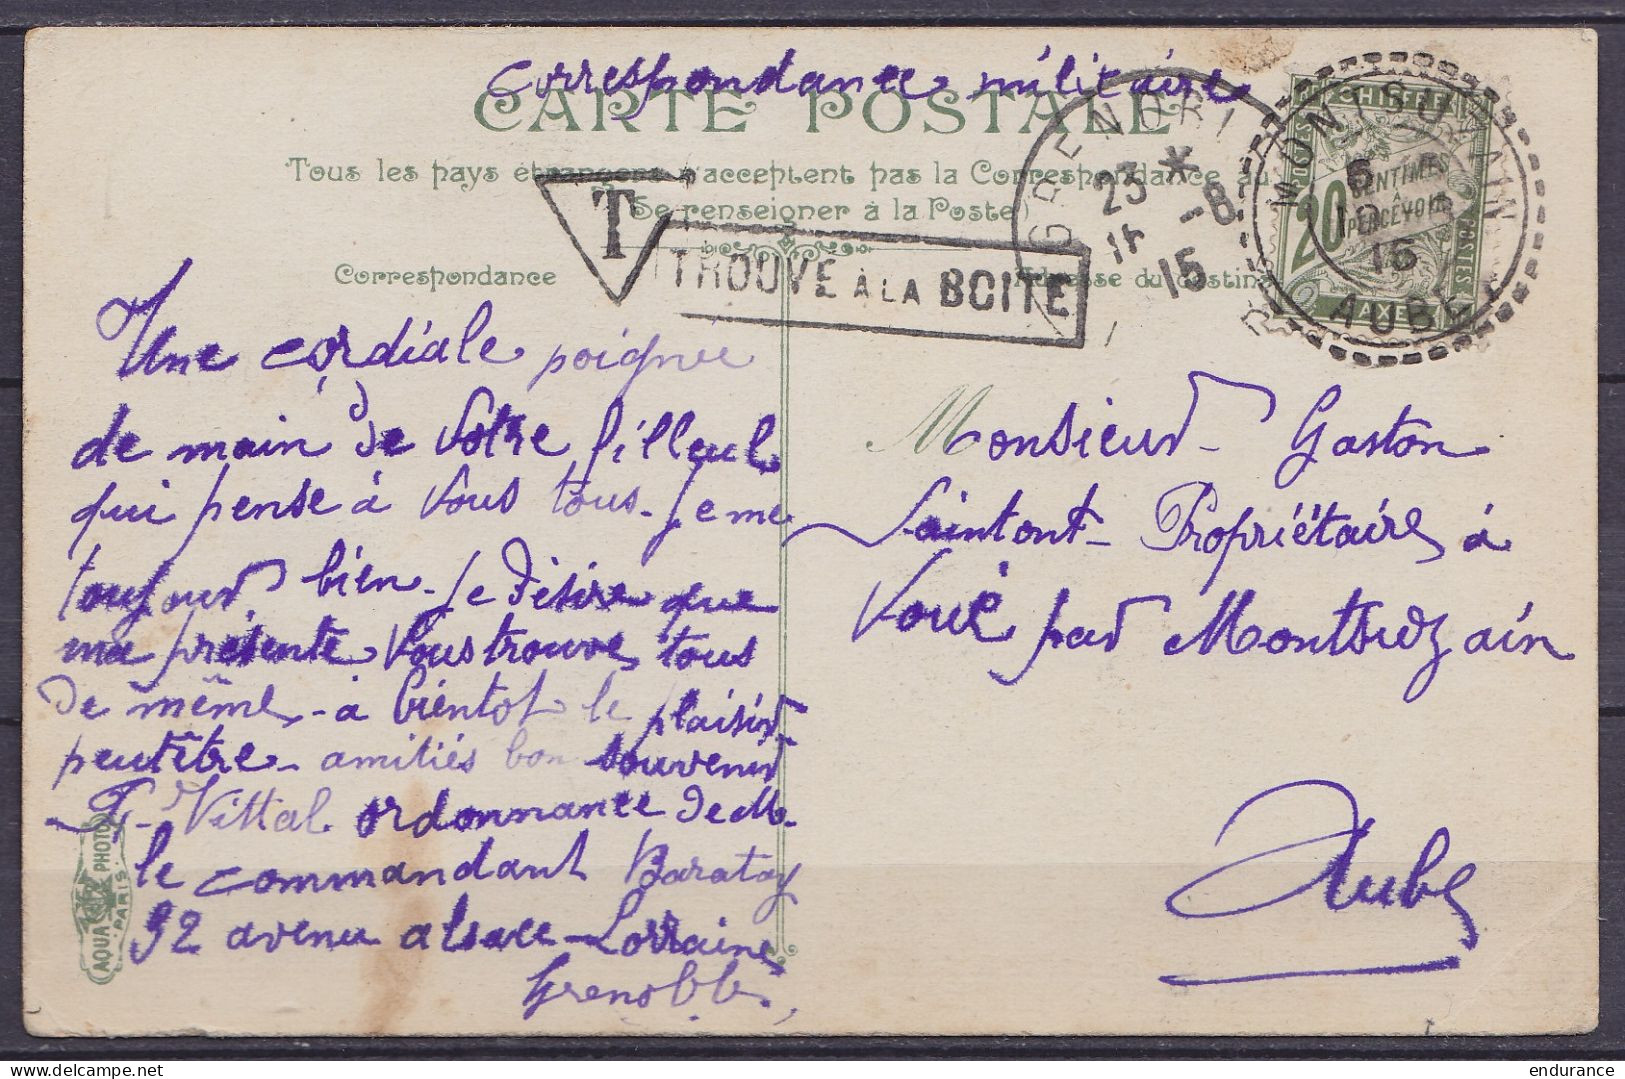 Correspondance militaire
CARTE POSTALE
Tous les pays étrangers n'acceptent pas la Correspondance au
(Se renseigner à la Poste)
T
TROUVÉ À LA BOITE
GRENOBL
23 *
16 -8
15
MONTSUZAIN
6
16
AUBE
POSTES
CHIFFRE
20 CENTIMES
À
PERCEVOIR
TAXE
Correspondance
Adresse du destina
Une cordiale poignée
de main de votre filleul
qui pense à vous tous. Je me
toujours bien. Je désire que
ma présente vous trouve tous
de même. à bientot le plaisir
peutêtre. amitiés bon souvenir
Vittal ordonnance de M.
le commandant Baratay
92 avenu alsace-Lorraine
Grenoble.
Monsieur Gaston
Saintont Propriétaire à
Voué par Montsuzain
Aube
AQUA PHOTO
PARIS
endurance
delcampe.net